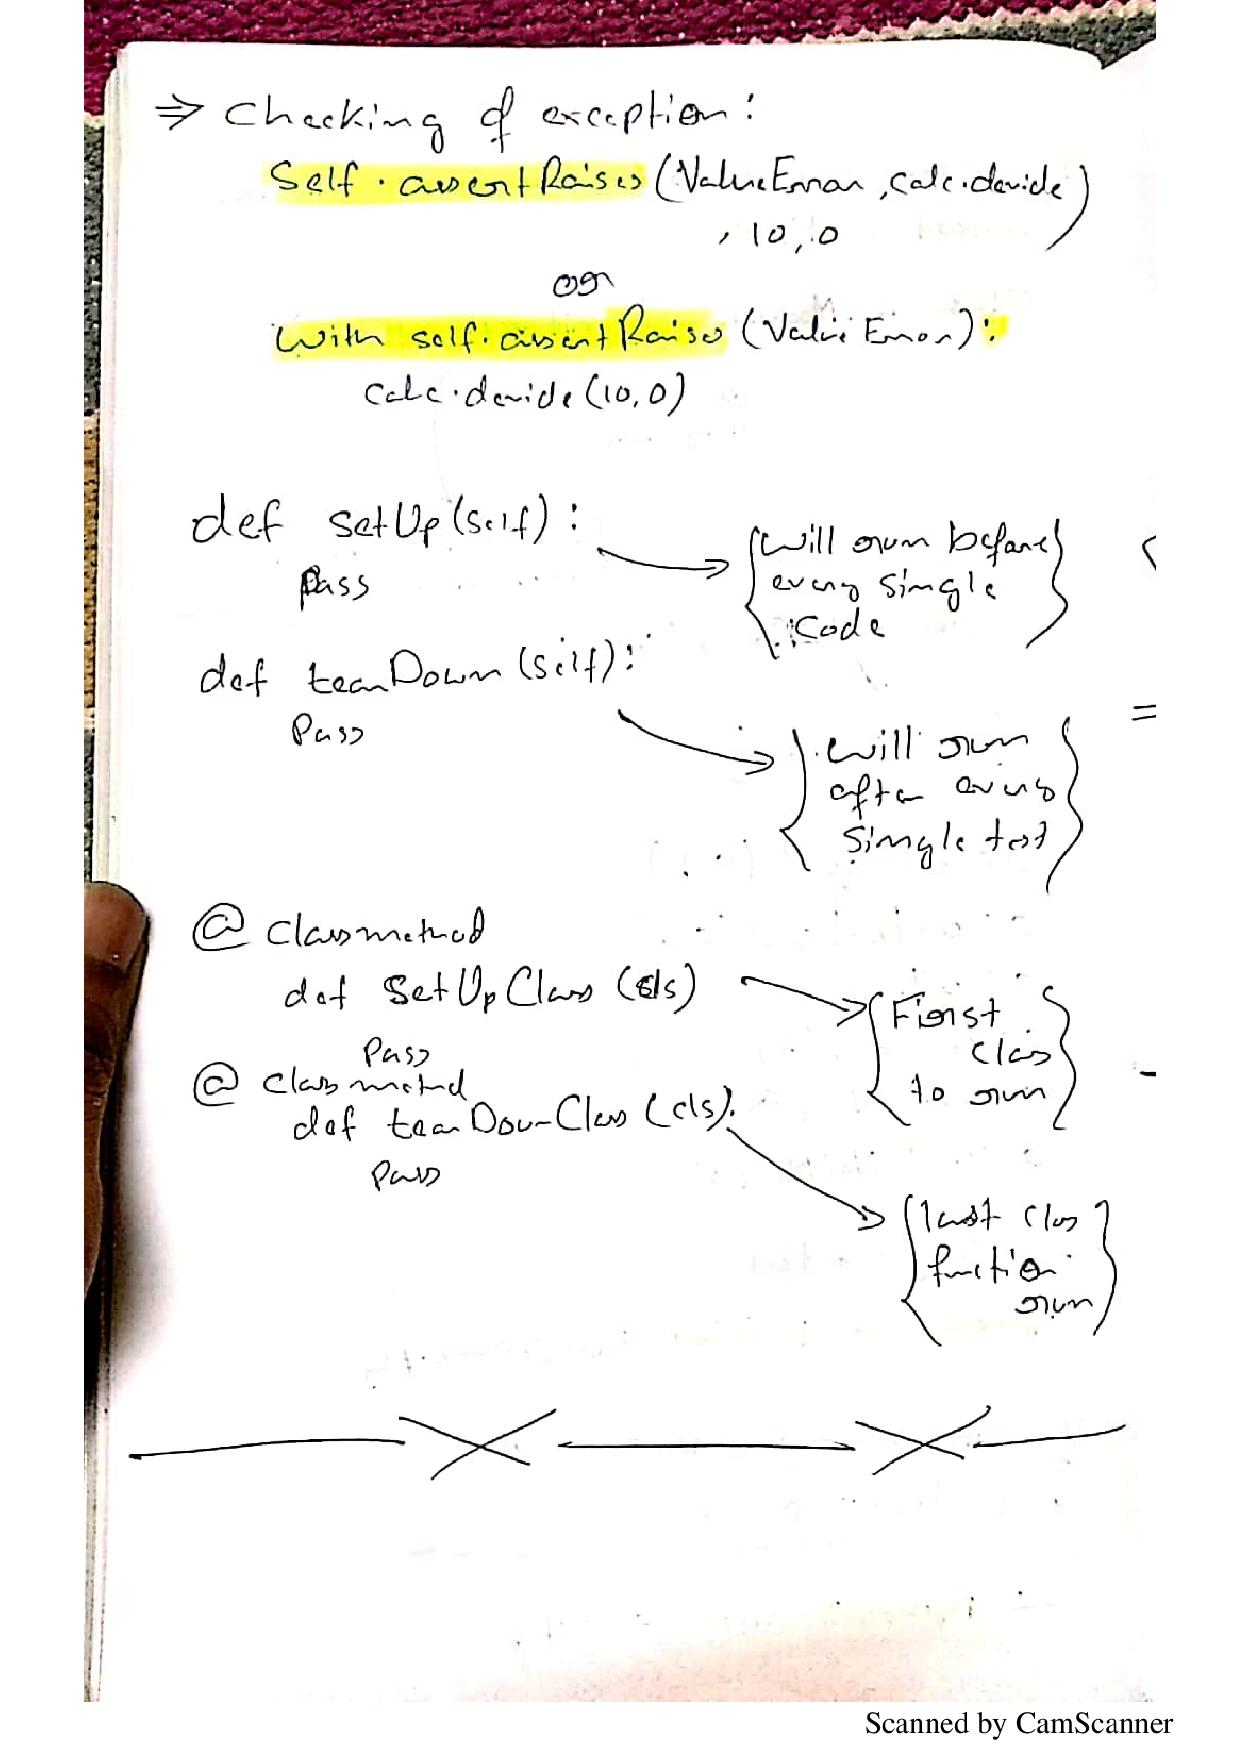 ⇒ Checking of exception:
Self.assertRaises (ValueError, calc.devide
, 10, 0)
or
with self.assertRaises (ValueError):
calc.devide (10, 0)
def setUp (self):
pass
{will run before
every single
code}
def tearDown (self):
Pass
{will run
after every
single test}
@ classmethod
def SetUpClass (cls)
Pass
{First
class
to run}
@ classmethod
def tearDownClass (cls):
Pass
{last class
function
run}
Scanned by CamScanner